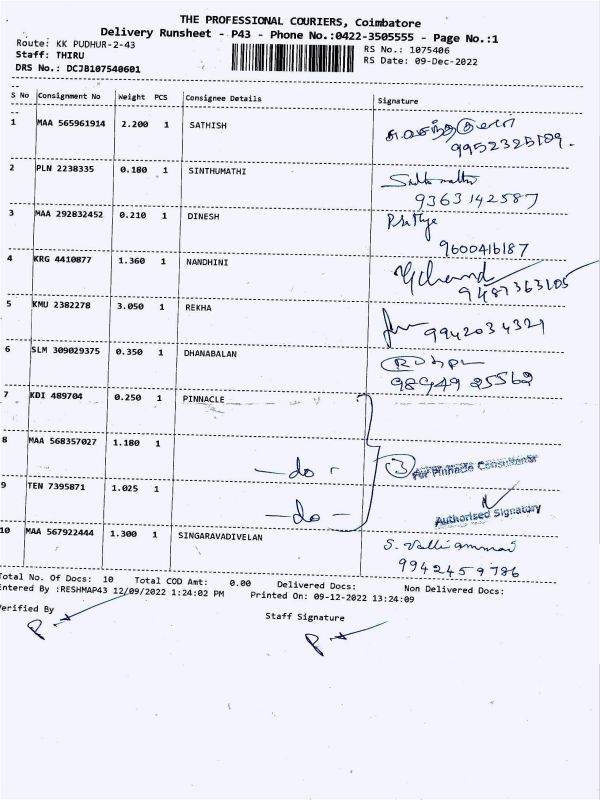 THE PROFESSIONAL COURIERS, Coimbatore
Delivery Runsheet - P43 - Phone No.:0422-3505555 - Page No.:1
Route: KK PUDHUR-2-43 RS No.: 1075406
Staff: THIRU RS Date: 09-Dec-2022
DRS No.: DCJB107540601
S No Consignment No Weight PCS Consignee Details Signature
1 MAA 565961914 2.200 1 SATHISH
9952325109.
2 PLN 2238335 0.180 1 SINTHUMATHI
9363142587
3 MAA 292832452 0.210 1 DINESH
9600416187
4 KRG 4410877 1.360 1 NANDHINI
9487363105
5 KMU 2382278 3.050 1 REKHA
9942034321
6 SLM 309029375 0.350 1 DHANABALAN
98949 25562
7 KDI 489704 0.250 1 PINNACLE
8 MAA 568357027 1.180 1
—do- 3 For Pinnacle Consultants
9 TEN 7395871 1.025 1
—do— Authorised Signatory
10 MAA 567922444 1.300 1 SINGARAVADIVELAN S. Valliammai
9942459786
Total No. Of Docs: 10 Total COD Amt: 0.00 Delivered Docs: Non Delivered Docs:
Entered By :RESHMAP43 12/09/2022 1:24:02 PM Printed On: 09-12-2022 13:24:09
Verified By Staff Signature